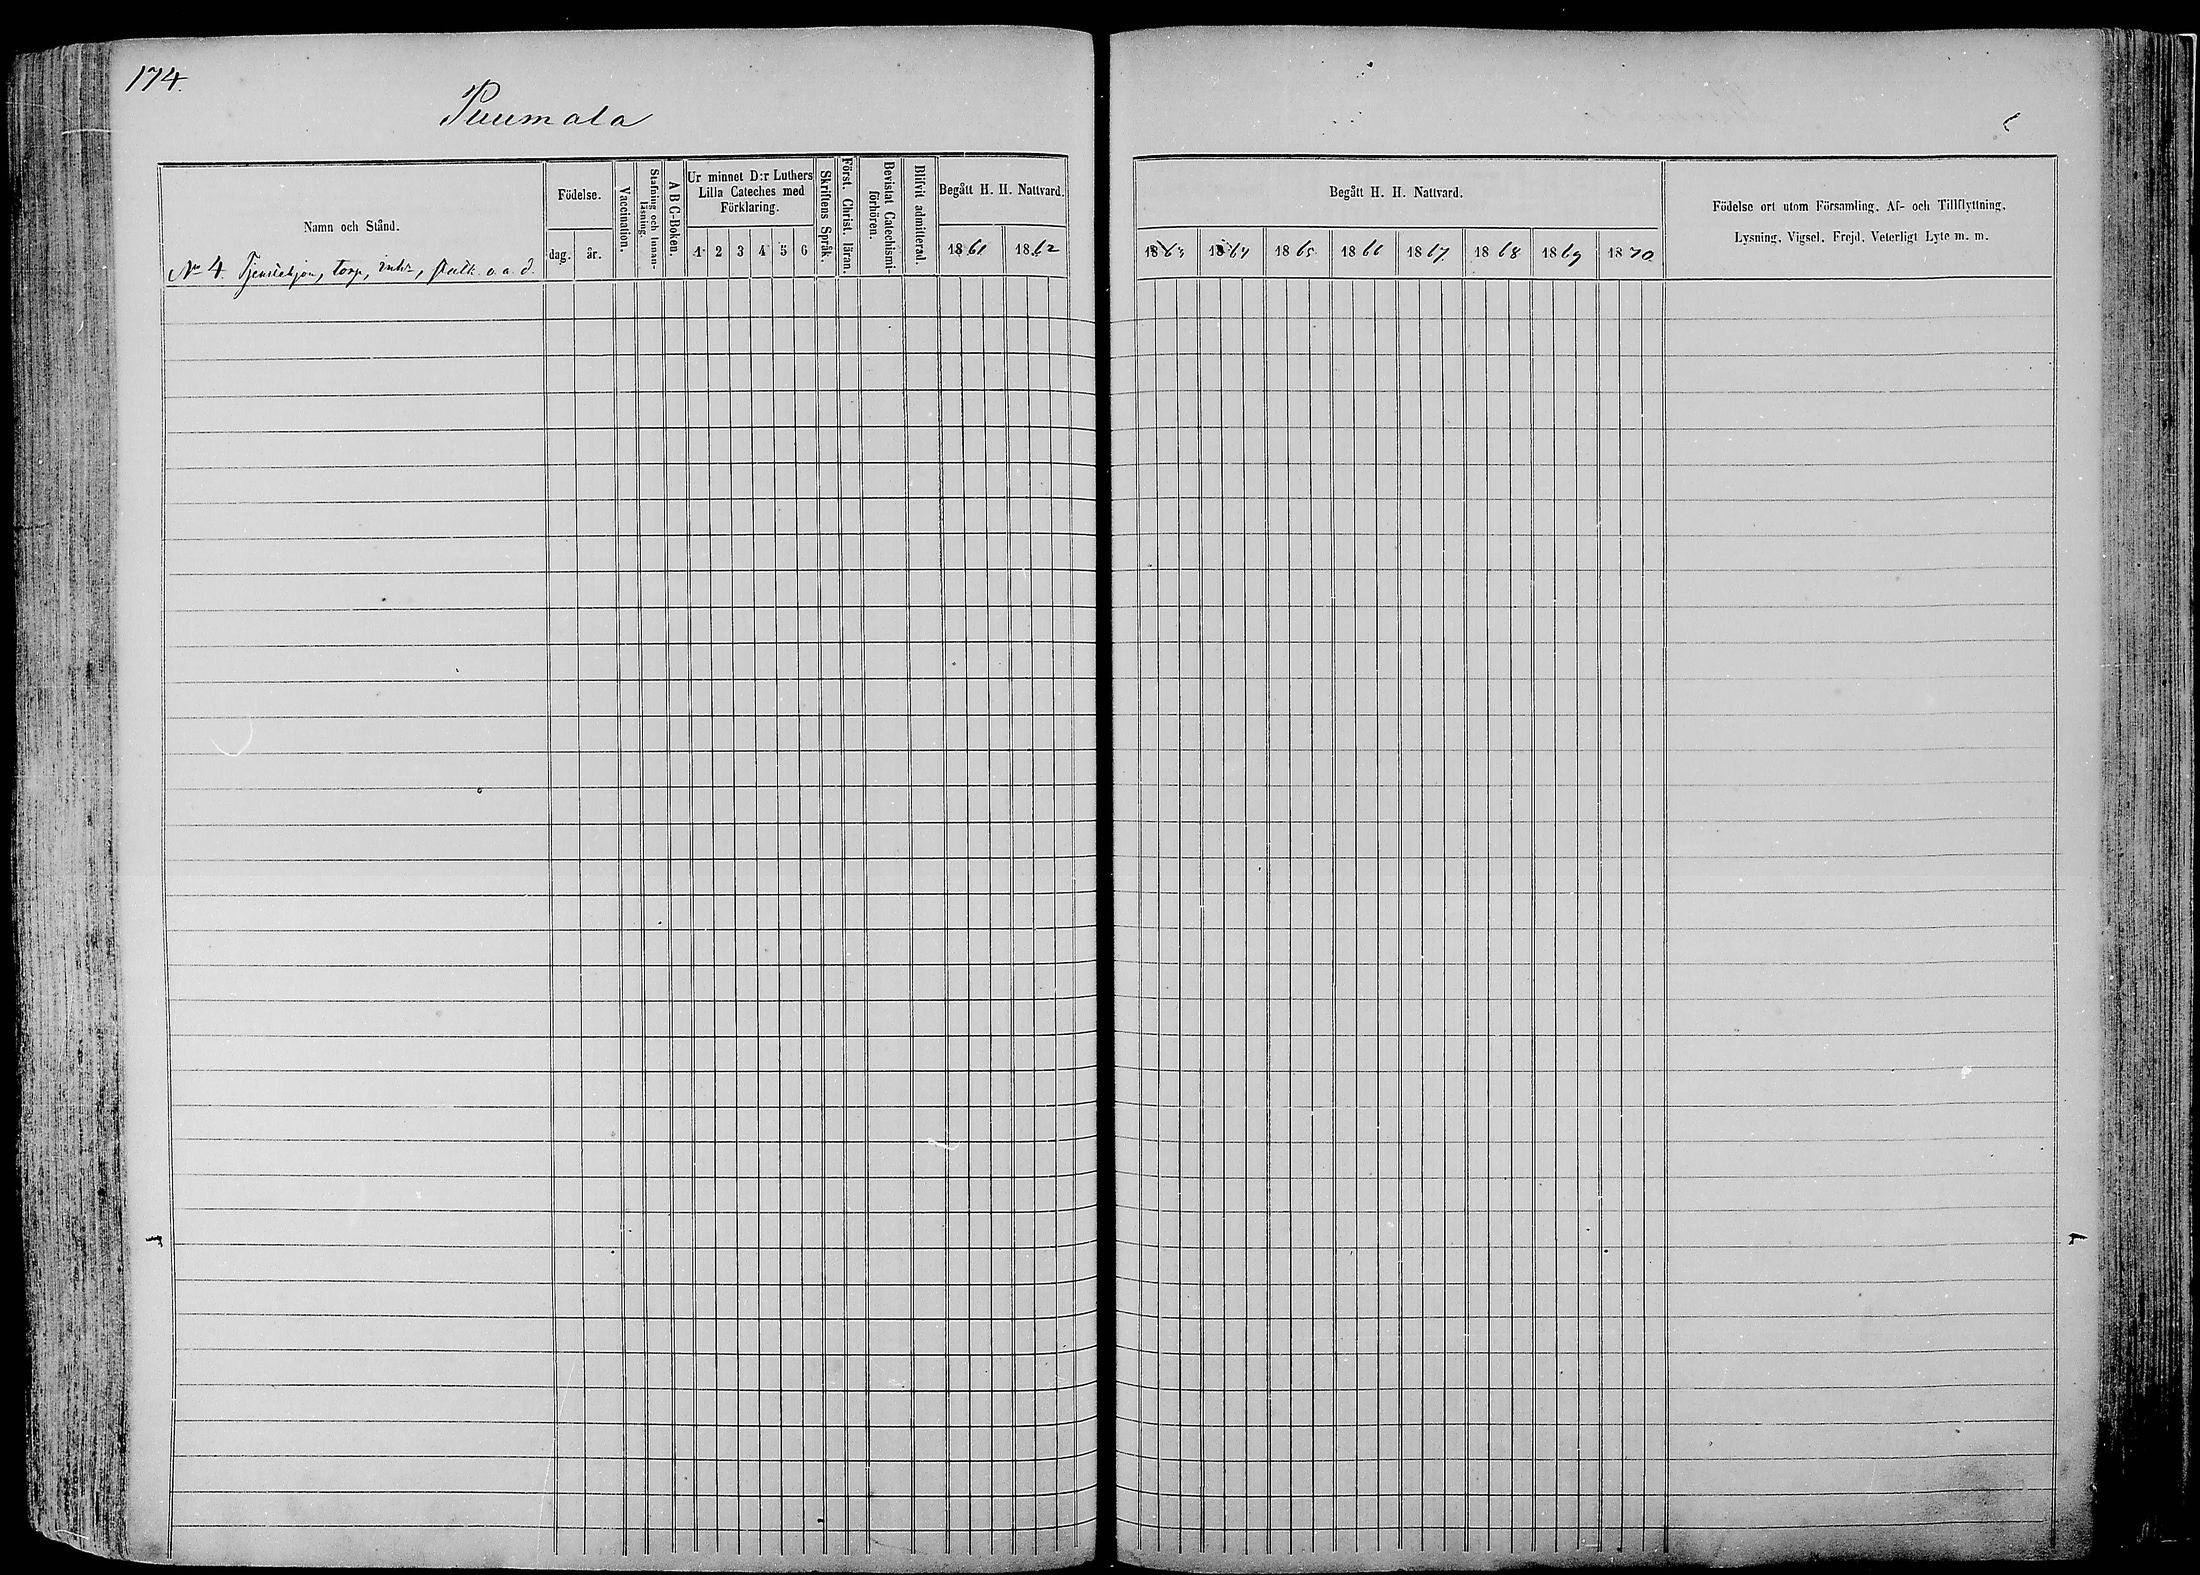 174.
Puumala
Namn och Stånd.
No 4. Tjenstehjon, torp, inh:r, statk. o.a.d.
Födelse.
dag.
år.
Vaccination.
Stafning och Innan-
läsning.
A B C-Boken.
Ur minnet D:r Luthers
Lilla Cateches med
Förklaring.
1 2 3 4 5 6
Skriftens Språk.
Först. Christ. läran.
Bevistat Catechismi-
förhören.
Blifvit admitterad.
Begått H. H. Nattvard.
1861 1862
Begått H. H. Nattvard.
1863 1864 1865 1866 1867 1868 1869 1870
Födelse ort utom Församling, Af- och Tillflyttning,
Lysning, Vigsel, Frejd, Veterligt Lyte m. m.